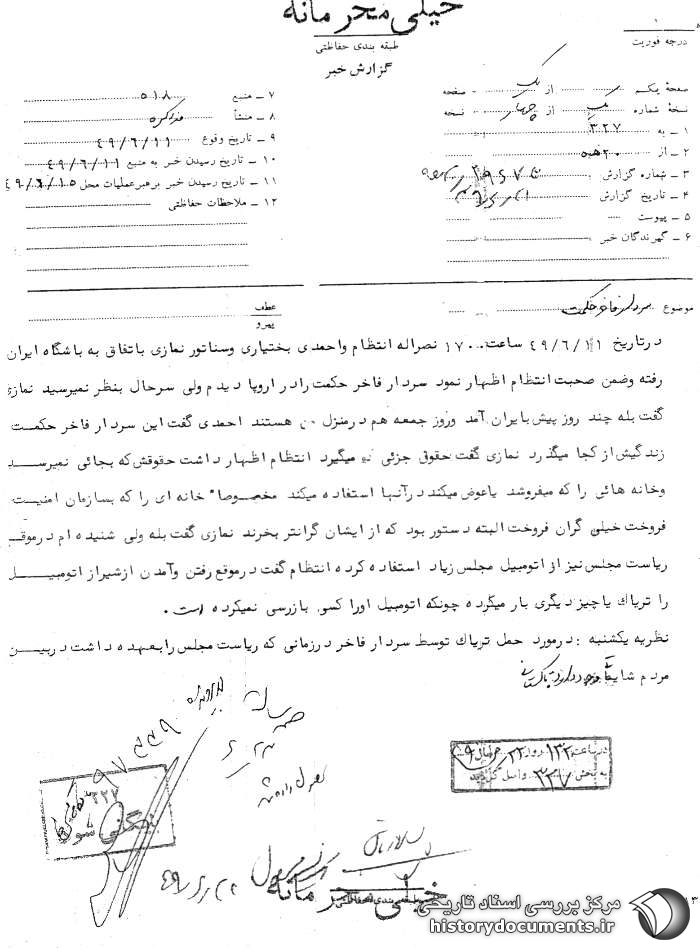 خیلی محرمانه
طبقه بندی حفاظتی
گزارش خبر
درجه فوریت
صفحهٔ یکم از یک صفحه
نسخهٔ شماره از چهار نسخه
۱ ـ به ۳۲۷
۲ ـ از ۲۰ هـ
۳ ـ شماره گزارش
۴ ـ تاریخ گزارش
۵ ـ پیوست
۶ ـ گیرندگان خبر
۷ ـ منبع ۵۱۸
۸ ـ منشأ مذاکره
۹ ـ تاریخ وقوع ۴۹/۶/۱۱
۱۰ ـ تاریخ رسیدن خبر به منبع ۴۹/۶/۱۱
۱۱ ـ تاریخ رسیدن خبر برهبر عملیات محل ۴۹/۶/۱۵
۱۲ ـ ملاحظات حفاظتی
موضوع سردار فاخر حکمت
عطف
پیرو
درتاریخ ۴۹/۶/۱۱ ساعت ۱۷۰۰ نصراله انتظام واحمدی بختیاری وسناتور نمازی باتفاق به باشگاه ایران
رفته وضمن صحبت انتظام اظهار نمود سردار فاخر حکمت رادر اروپا دیدم ولی سرحال بنظر نمیرسید نمازی
گفت بله چند روز پیش بایران آمد وروز جمعه هم درمنزل من هستند احمدی گفت این سردار فاخر حکمت
زندگیش از کجا میگذرد نمازی گفت حقوق جزئی میگیرد انتظام اظهار داشت حقوقش که بجائی نمیرسد
وخانه هائی را که میفروشد یاعوض میکند درآنها استفاده میکند مخصوصا" خانه ای را که بسازمان امنیت
فروخت خیلی گران فروخت البته دستور بود که از ایشان گرانتر بخرند نمازی گفت بله ولی شنیده ام درموقع
ریاست مجلس نیز از اتومبیل مجلس زیاد استفاده کرده انتظام گفت درموقع رفتن وآمدن ازشیراز اتومبیل
را تریاك یاچیز دیگری بار میکرده چونکه اتومبیل اورا کسی بازرسی نمیکرده است .
نظریه یکشنبه : درمورد حمل تریاك توسط سردار فاخر درزمانی که ریاست مجلس رابعهده داشت دربین
مردم شایعاتی وجود دارد
در ساعت روز
به بخش ۳۲۷ واصل گردید
۳۲۲
بایگانی شود
خیلی محرمانه
طبقه بندی حفاظتی
مرکز بررسی اسناد تاریخی
historydocuments.ir